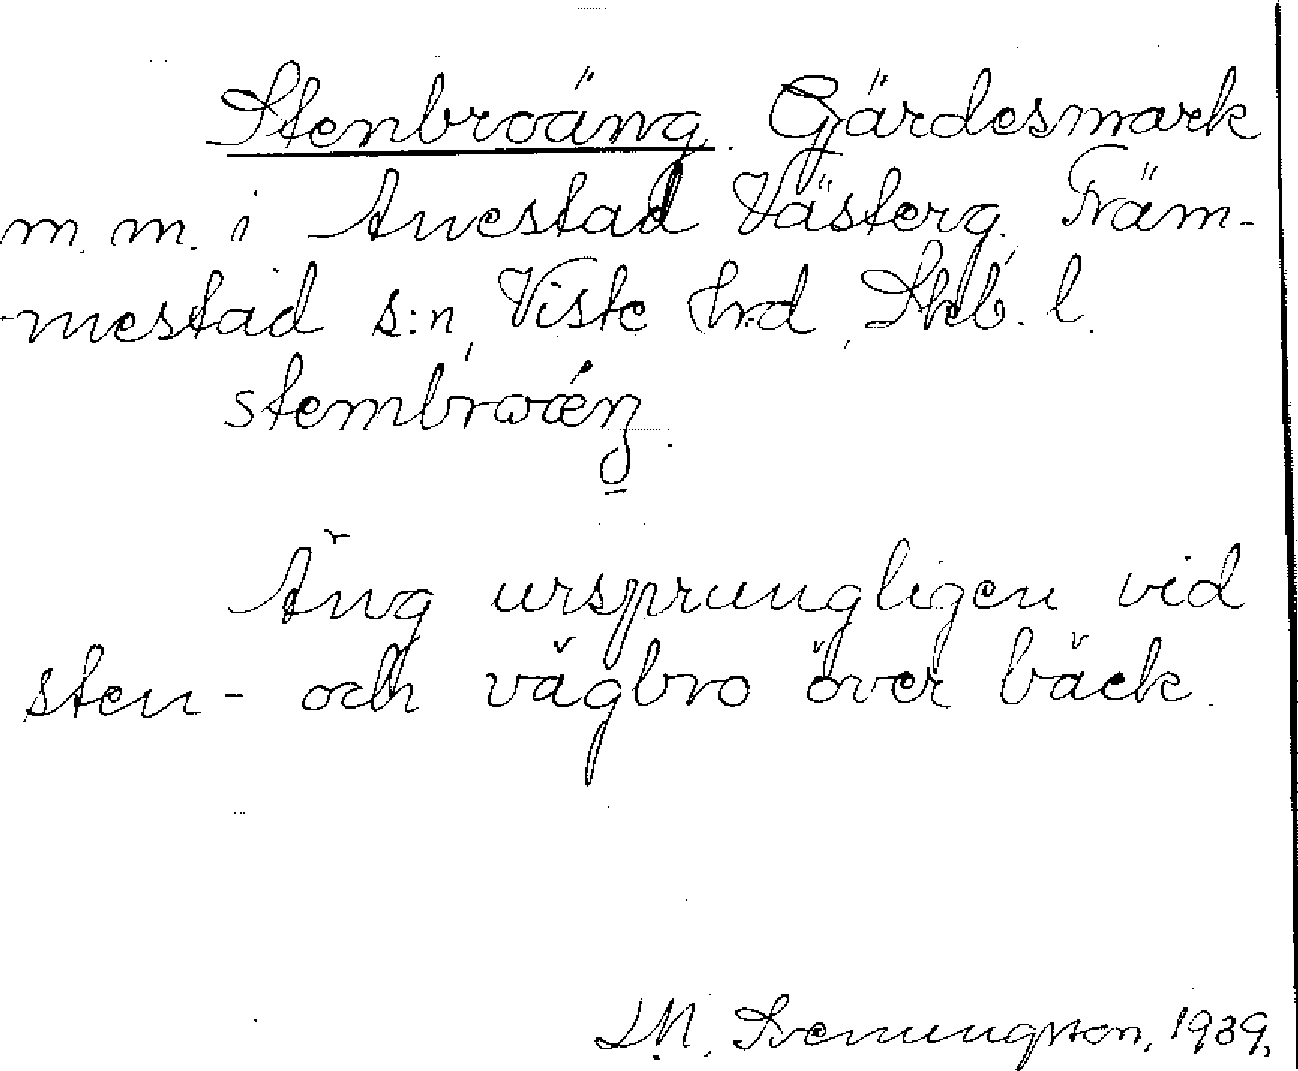 Stenbroäng. Gärdesmark
m. m. i Avestad Västerg. Främ-
-mestad s:n, Viste hrd, Skb. l.
Äng ursprungligen vid
sten- och vägbro över bäck.
Svenungsson, 1939,